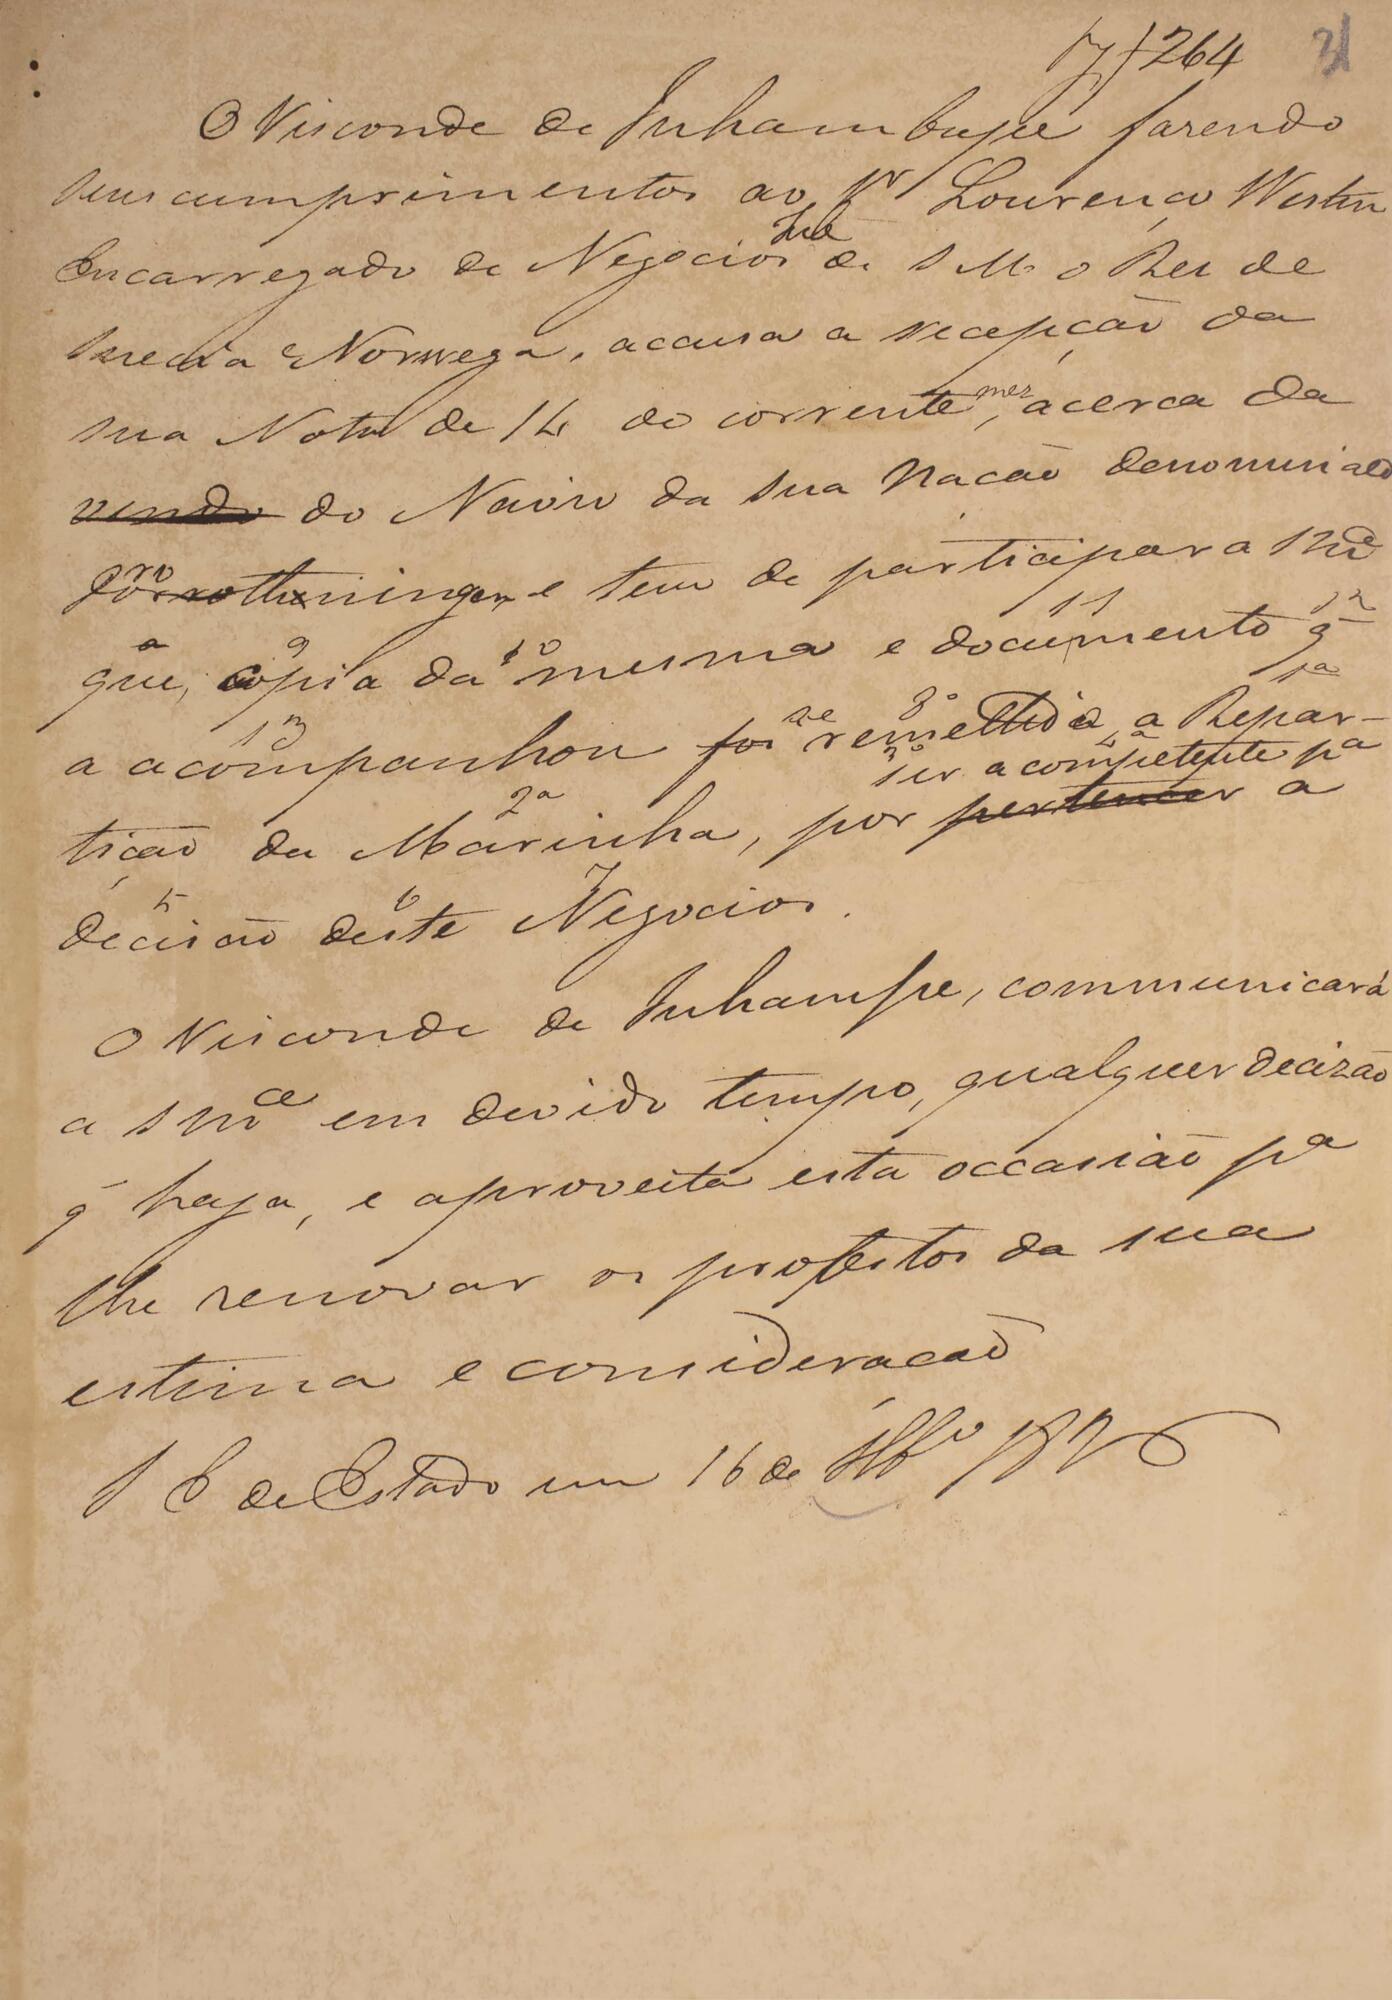 264 31
O Visconde de Inhambupe fazendo
seus cumprimentos ao Sr Lourenço Westin
Encarregado de Negocios de S M o Rei de
Suecia e Norwega, accusa a recepção da
sua Nota de 14 do corrente mez, acerca da
venda do Navio da sua Nação denominado
e tem de participar a S Mce
que, copia da mesma e documento q
9 10 11 12
a acompanhou foi se remettida a Repar-
13 8º 1a
ser a competente pa
tição da Marinha, por pertencer a
2a 3º 4a
decisão deste Negocios.
5 6 7
O Visconde de Inhampe, communicará
a S Mce em devido tempo, qualquer decizão
q haja, e aproveita esta occasião pa
lhe renovar os protestos da sua
estima e consideração
S E de Estado em 16 de 8bro 1826